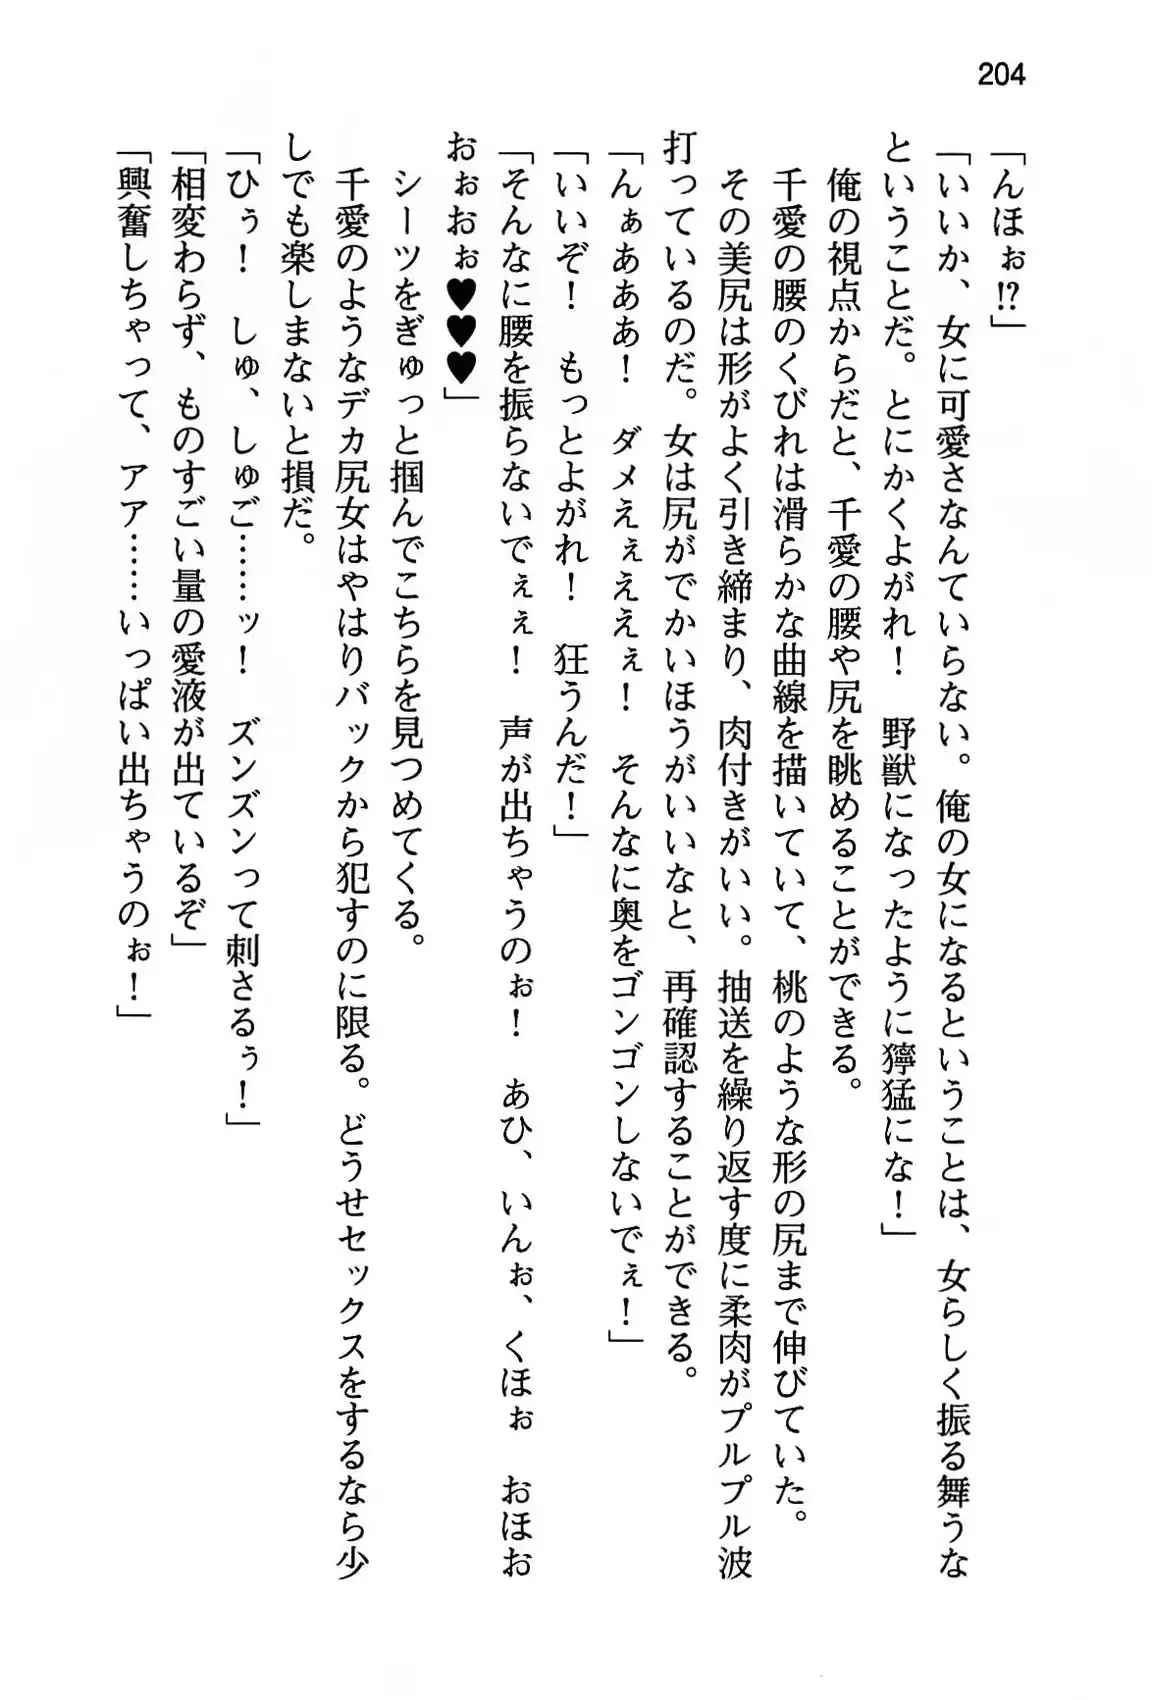 204
「んほぉ!?」
「いいか、女に可愛さなんていらない。俺の女になるということは、女らしく振る舞うな
ということだ。とにかくよがれ！　野獣になったように獰猛にな！」
　俺の視点からだと、千愛の腰や尻を眺めることができる。
　千愛の腰のくびれは滑らかな曲線を描いていて、桃のような形の尻まで伸びていた。
　その美尻は形がよく引き締まり、肉付きがいい。抽送を繰り返す度に柔肉がプルプル波
打っているのだ。女は尻がでかいほうがいいなと、再確認することができる。
「んぁあああ！　ダメえぇええぇ！　そんなに奥をゴンゴンしないでぇ！」
「いいぞ！　もっとよがれ！　狂うんだ！」
「そんなに腰を振らないでぇぇ！　声が出ちゃうのぉ！　あひ、いんぉ、くほぉ　おほお
おぉおぉ♥♥♥」
　シーツをぎゅっと掴んでこちらを見つめてくる。
　千愛のようなデカ尻女はやはりバックから犯すのに限る。どうせセックスをするなら少
しでも楽しまないと損だ。
「ひぅ！　しゅ、しゅご……ッ！　ズンズンって刺さるぅ！」
「相変わらず、ものすごい量の愛液が出ているぞ」
「興奮しちゃって、アア……いっぱい出ちゃうのぉ！」